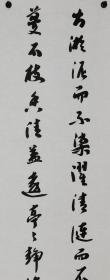 出淤泥而不染濯清涟而不
蔓不枝香清益远亭亭静植